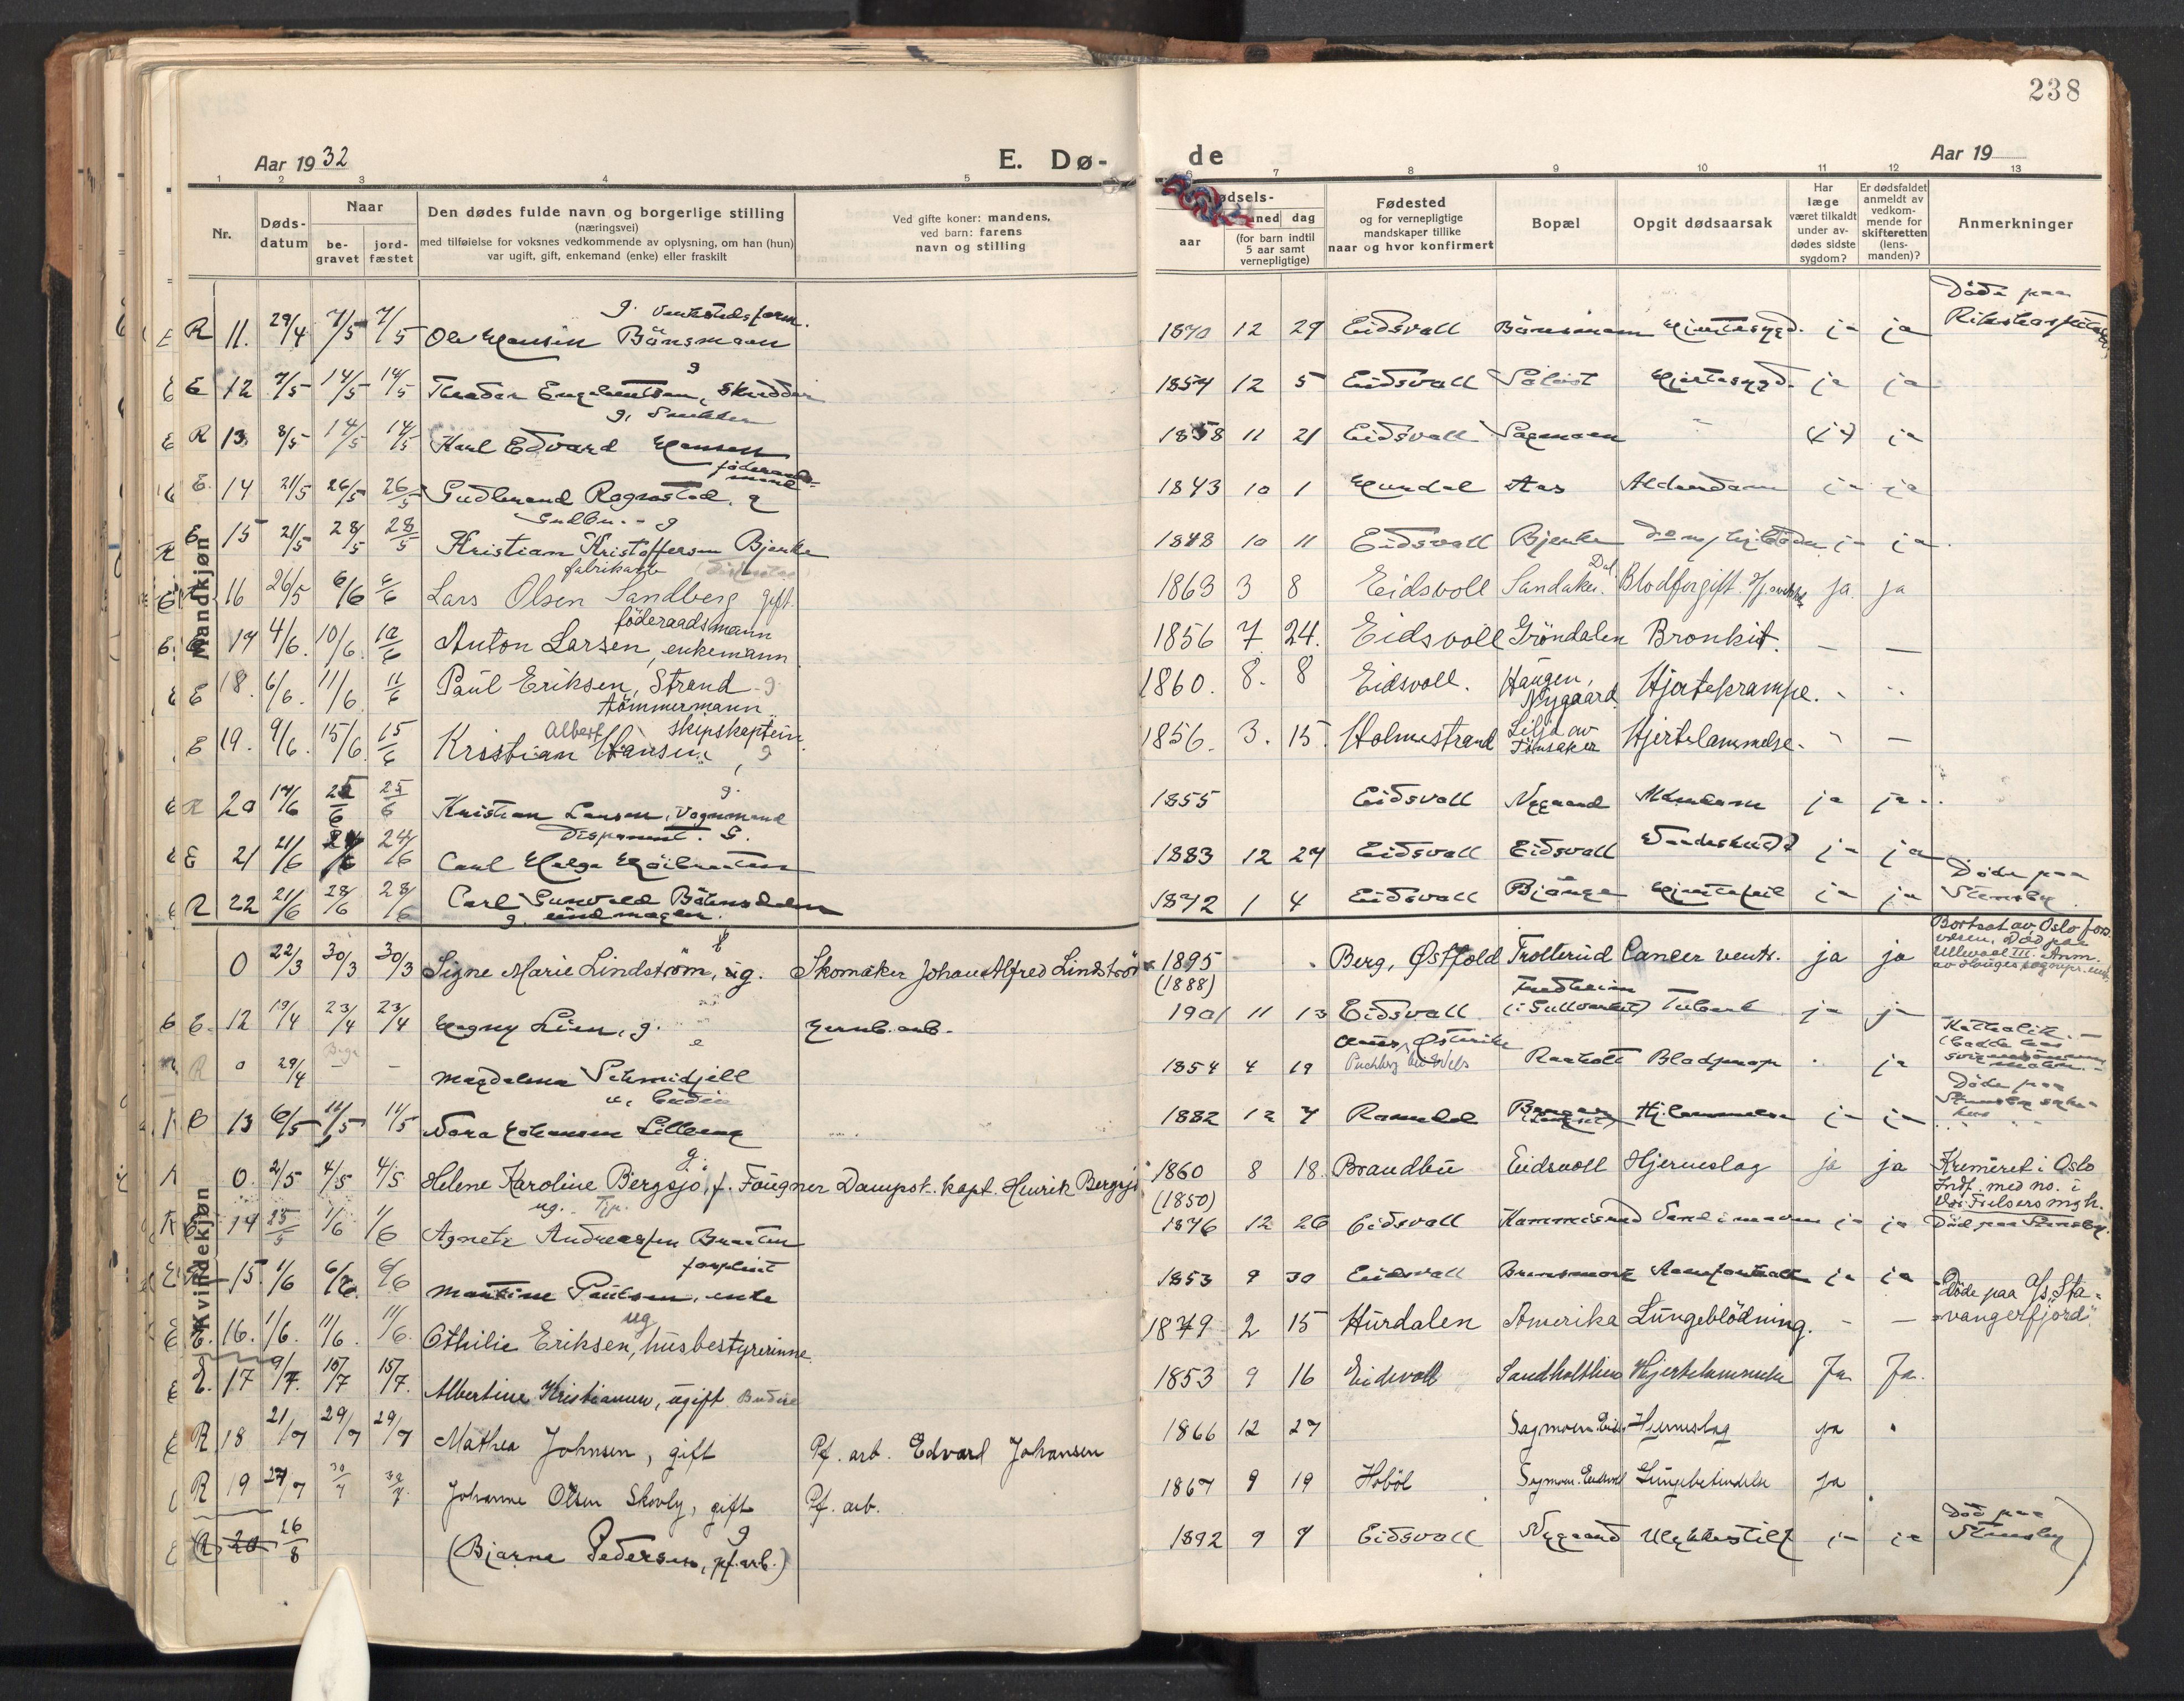 238
Aar 1932
E. Dø-
de
Aar 19
1 2 3 4 5 6 7 8 9 10 11 12 13
Nr.
Døds-
datum
Naar
be-
gravet
jord-
fæstet
Den dødes fulde navn og borgerlige stilling
(næringsvei)
med tilføielse for voksnes vedkommende av oplysning, om han (hun)
var ugift, gift, enkemand (enke) eller fraskilt
Ved gifte koner: mandens,
ved barn: farens
navn og stilling
ødsels-
aar
ned dag
(for barn indtil
5 aar samt
vernepligtige)
Fødested
og for vernepligtige
mandskaper tillike
naar og hvor konfirmert
Bopæl
Opgit dødsaarsak
Har
læge
været tilkaldt
under av-
dødes sidste
sygdom?
Er dødsfaldet
anmeldt av
vedkom-
mende for
skifteretten
(lens-
manden)?
Anmerkninger
Mandkjøn
g. Verkstedsform. Døde paa
R 11. 29/4 7/5 7/5 Ole Hansen Bönsmoen 1870 12 29 Eidsvoll Bönsmoen Hjertesygd. ja ja Rikshospitalet
g
E 12 7/5 14/5 14/5 1854 12 5 Eidsvoll Hjertesygd. ja ja
g,
R 13 8/5 14/5 14/5 Karl Edvard Hansen 1858 11 21 Eidsvoll Sagmoen (ja) ja
föderaads-
mand
E. 14 21/5 26/5 26/5 Gudbrand Rognstad. g 1843 10 1 Hurdal Aas Alderdom ja ja
Gudbr. - g
E 15 21/5 28/5 28/5 Kristian Kristoffersen Bjerke 1848 10 11 Eidsvoll Bjerke ja ja
fabrikarb Dal
16 26/5 6/6 6/6 Lars Olsen Sandberg gift. 1863 3 8 Eidsvoll Sandaker. Blodforgift. ja ja
föderaadsmann
E 17 4/6. 10/6. 10/6 Anton Larsen, enkemann 1856 7. 24. Eidsvoll Gröndalen Bronkit. — —
E 18. 6/6. 11/6. 11/6 Paul Eriksen, Strand g 1860. 8. 8 Eidsvoll. Haugen, Nygaard Hjertekrampe.
tömmermann
Albert skipskaptein.
E 19. 9/6. 15/6. 15/6 Kristian Hansen, g 1856. 3. 15. Holmestrand Lilja av Tömsaker Hjertelammelse. " —
g.
R 20 17/6 25/6 25/6 Kristian Larsen, Vognmand 1855 Eidsvoll Nygaard ja ja
Disponent. G.
E 21 21/6 24/6 24/6 Carl Helge 1883 12 27 Eidsvoll Eidsvoll ja ja
Døde paa
R 22 21/6 28/6 28/6 Carl Gunvald 1872 1 4 Eidsvoll Hjertefeil ja ja Stensby
g.
Kvindekjøn
Bortsat av Oslo fors.
vesen. Död paa
Ullevaal III. Anm.
0 22/3 30/3 30/3 Signe Marie Lindström, ug. Skomaker Johan Alfred Lindström 1895 Berg, Østfold Trotterud Cancer ventr. ja ja
(1888)
Fredheim
E. 12 19/4 23/4 23/4 Magny Lien, g. Jernb. arb. 1901 11 13 Eidsvoll (i Gullverket) Tuberk ja ja
Østerike Katholik. —
R 0 29/4 — — Magdalena Schmidjell 1854 4 19 Puchberg bei Wels Raaholt Blodprop ja
u. budeie Døde paa
E 13 6/5 11/5 11/5 Nora Johansen Lilleeng 1882 12 7 Romedal Hj.lammelse ja ja
g.
0. 2/5 4/5 4/5 Helene Karoline Bergsjö, f. Faugner Dampsk. kapt. Henrik Bergsjö 1860 8 18. Brandbu Eidsvoll Hjerneslag ja ja Kremeret i Oslo
(1850) Indf. med no. i
Vor Frelsers mgh.
ug.
E 14 25/5 1/6 1/6 Agnete Andreassen Braaten 1876 12 26 Eidsvoll ja ja Död paa Stensby.
forpleiet
15. 1/6 6/6. 6/6 Martine Paulsen, enke 1853 9 30 Eidsvoll Bönsmoen ja ja
Döde paa s/s "Sta-
vangerfjord".
ug
E. 16. 1/6. 11/6. 11/6. Othilie Eriksen, husbestyrerinne 1879 2 15 Hurdalen Amerika Lungeblödning. — —
E. 17 9/7. 15/7 15/7. Albertine Kristiansen, ugift Budeie 1853 9 16 Eidsvoll Sandholtlien Hjertelammelse Ja Ja.
R 18 21/7 29/7 29/7 Mathea Johnsen, gift Pf. arb. Edvard Johansen 1866 12 27 Sagmoen Eidsv. Hjerneslag ja
R 19 27/7 30/7 30/7. Johanne Olsen Skovly, gift Pf. arb. 1867 9 19 Hobøl Sagmoen Eidsvoll Lungebetendelse ja
g Død paa
R 20 26/8 (Bjarne Pedersen, pf. arb.) 1892 9 9 Eidsvoll Nygaard Ulykkestilf ja ja Stensby)